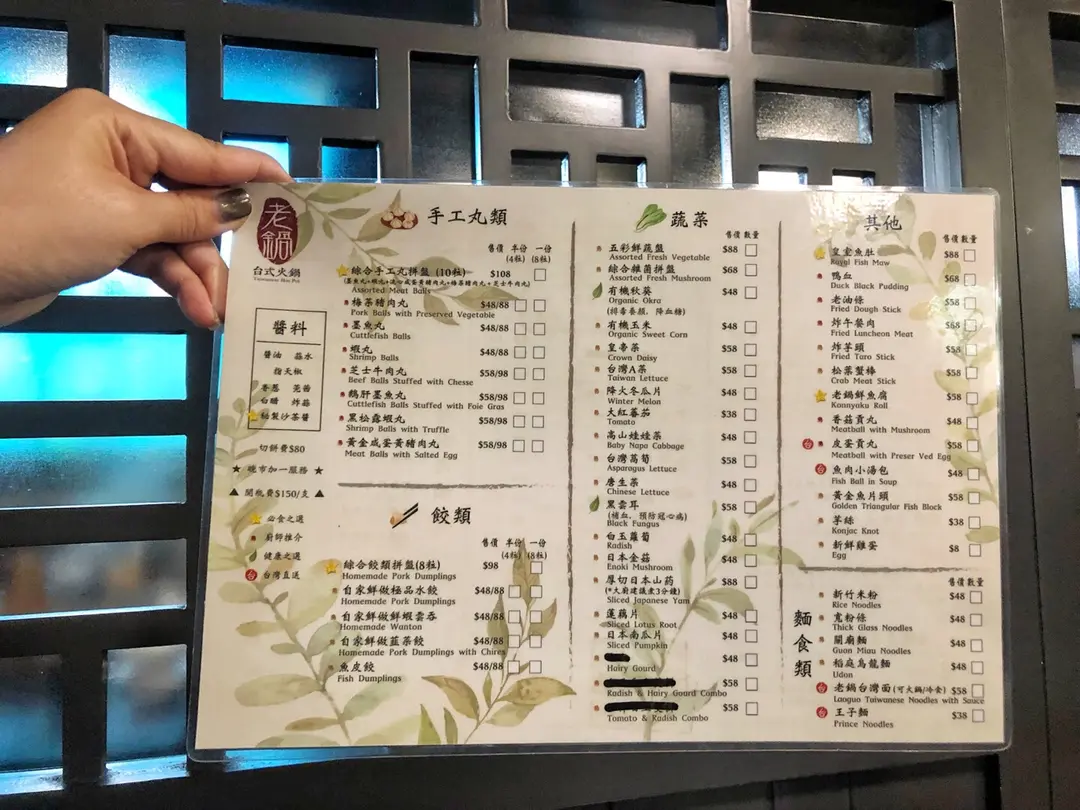 老鍋
台式火鍋
Taiwanese Hot Pot
醬料
醬油 蒜水
指天椒
香葱 芫茜
白醋 炸蒜
秘製沙茶醬
切餅費$80
★ 晚市加一服務 ★
▲ 開瓶費$150/支 ▲
必食之選
廚師推介
健康之選
台灣直送
手工丸類
售價 半份 一份
(4粒) (8粒)
綜合手工丸拼盤 (10粒) $108
Assorted Meat Balls
梅菜豬肉丸 $48/88
Pork Balls with Preserved Vegetable
墨魚丸 $48/88
Cuttlefish Balls
蝦丸 $48/88
Shrimp Balls
芝士牛肉丸 $58/98
Beef Balls Stuffed with Chesse
鵝肝墨魚丸 $58/98
Cuttlefish Balls Stuffed with Foie Gras
黑松露蝦丸 $58/98
Shrimp Balls with Truffle
黃金咸蛋黃豬肉丸 $58/98
Meat Balls with Salted Egg
餃類
售價 半份 一份
(4粒) (8粒)
綜合餃類拼盤(8粒) $98
Homemade Pork Dumplings
自家鮮做極品水餃 $48/88
Homemade Pork Dumplings
自家鮮做鮮蝦雲吞 $48/88
Homemade Wanton
自家鮮做韮菜餃 $48/88
Homemade Pork Dumplings with Chires
魚皮餃 $48/88
Fish Dumplings
蔬菜
售價 數量
五彩鮮蔬盤 $88
Assorted Fresh Vegetable
綜合雜菌拼盤 $68
Assorted Fresh Mushroom
有機秋葵 $48
Organic Okra
(排毒養顏，降血糖)
有機玉米 $48
Organic Sweet Corn
皇帝菜 $58
Crown Daisy
台灣A菜 $58
Taiwan Lettuce
降火冬瓜片 $48
Winter Melon
大紅蕃茄 $38
Tomato
高山娃娃菜 $48
Baby Napa Cabbage
台灣萵筍 $58
Asparagus Lettuce
唐生菜 $48
Chinese Lettuce
黑雲耳 $58
(補血，預防冠心病)
Black Fungus
白玉蘿蔔 $48
Radish
日本金菇 $48
Enoki Mushroom
厚切日本山药 $88
(*大廚建議煮3分鐘)
Sliced Japanese Yam
蓮藕片 $48
Sliced Lotus Root
日本南瓜片 $48
Sliced Pumpkin
$48
Hairy Gourd
$58
Radish & Hairy Gourd Combo
$58
Tomato & Radish Combo
其他
售價 數量
皇室魚肚 $88
Royal Fish Maw
鴨血 $68
Duck Black Pudding
老油條 $58
Fried Dough Stick
炸午餐肉 $68
Fried Luncheon Meat
炸芋頭 $58
Fried Taro Stick
松葉蟹棒 $58
Crab Meat Stick
老鍋鮮魚腐 $58
Konnyaku Roll
香菇貢丸 $48
Meatball with Mushroom
皮蛋貢丸 $58
Meatball with Preser Ved Egg
魚肉小湯包 $58
Fish Ball in Soup
黃金魚片頭 $58
Golden Triangular Fish Block
芋絲 $38
Konjac Knot
新鮮雞蛋 $8
Egg
麵食類
售價 數量
新竹米粉 $48
Rice Noodles
寬粉條 $48
Thick Glass Noodles
關廟麵 $48
Guan Miau Noodles
稻庭烏龍麵 $48
Udon
老鍋台灣面(可火鍋/冷食) $58
Laoguo Taiwanese Noodles with Sauce
王子麵 $38
Prince Noodles